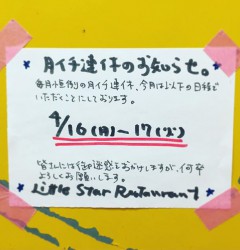 月イチ連休のお知らせ。
毎月恒例の月イチ連休、今月は以下の日程で
いただくことにしております。
4/16(月)ー17(火)
皆さんには御迷惑をおかけしますが、何卒
よろしくお願いします。
Little Star Restaurant